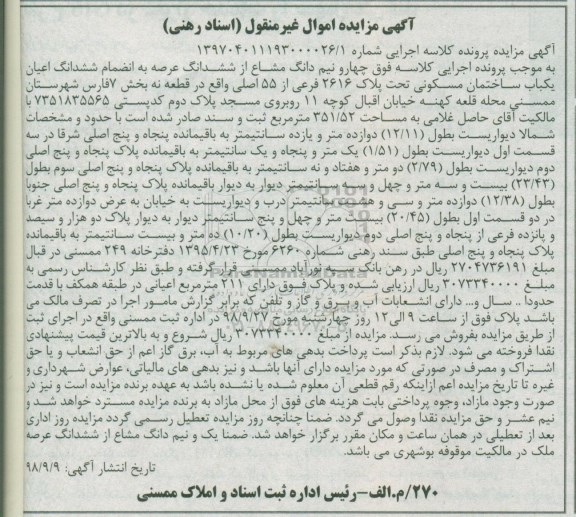 آگهی مزایده اموال غیرمنقول (اسناد رهنی)
آگهی مزایده پرونده کلاسه اجرایی شماره ۱۳۹۷۰۴۰۱۱۱۹۳۰۰۰۰۲۶/۱
به موجب پرونده اجرایی کلاسه فوق چهارو نیم دانگ مشاع از ششدانگ عرصه به انضمام ششدانگ اعیان
یکباب ساختمان مسکونی تحت پلاک ۲۶۱۶ فرعی از ۵۵ اصلی واقع در قطعه نه بخش ۷فارس شهرستان
ممسنی محله قلعه کهنه خیابان اقبال کوچه ۱۱ روبروی مسجد پلاک دوم کدپستی ۷۳۵۱۸۳۵۵۶۵ با
مالکیت آقای حاصل غلامی به مساحت ۳۵۱/۵۲ مترمربع ثبت و سند صادر شده است با حدود و مشخصات
شمالا دیواریست بطول (۱۲/۱۱) دوازده متر و یازده سانتیمتر به باقیمانده پنجاه و پنج اصلی شرقا در سه
قسمت اول دیواریست بطول (۱/۵۱) یک متر و پنجاه و یک سانتیمتر به باقیمانده پلاک پنجاه و پنج اصلی
دوم دیواریست بطول (۲/۷۹) دو متر و هفتاد و نه سانتیمتر به باقیمانده پلاک پنجاه و پنج اصلی سوم بطول
(۲۳/۴۳) بیست و سه متر و چهل و سانتیمتر دیوار به دیوار باقیمانده پلاک پنجاه و پنج اصلی جنوبا
(۱۲/۳۸) دوازده متر و سی و هشت سانتیمتر درب و دیواریست به خیابان به عرض دوازده متر غربا
در دو قسمت اول بطول (۲۰/۴۵) بیست متر و چهل و پنج سانتیمتر دیوار به دیوار پلاک دو هزار و سیصد
و پانزده فرعی از پنجاه و پنج اصلی دوم دیواریست بطول (۱۰/۲۰) ده متر و بیست سانتیمتر به باقیمانده
پلاک پنجاه و پنج اصلی طبق سند رهنی شماره ۶۳۶۰ مورخ ۱۳۹۵/۴/۲۳ دفترخانه ۲۴۹ ممسنی در قبال
مبلغ ۲۷۰۴۷۳۶۱۹۱ ریال در رهن بانک نورآباد ممسنی قرار گرفته و طبق نظر کارشناس رسمی به
مبلغ ۳۰۷۳۳۴۰۰۰۰ ریال ارزیابی شده و پلاک فوق دارای ۲۱۱ مترمربع اعیانی در طبقه همکف با قدمت
حدودا .. سال و... دارای انشعابات آب و برق و گاز و تلفن که برابر گزارش مامور اجرا در تصرف مالک می
باشد پلاک فوق از ساعت ۹ الی۱۲ روز چهارشنبه مورخ ۹۸/۹/۲۷ در اداره ثبت ممسنی واقع در اجرای ثبت
از طریق مزایده بفروش می رسد. مزایده از مبلغ ۳۰۷۳۳۴۰۰۰۰ ریال شروع و به بالاترین قیمت پیشنهادی
نقدا فروخته می شود. لازم بذکر است پرداخت بدهی های مربوط به آب، برق گاز اعم از حق انشعاب و یا حق
اشتراک و مصرف در صورتی که مورد مزایده دارای آنها باشد و نیز بدهی های مالیاتی، عوارض شهرداری و
غیره تا تاریخ مزایده اعم ازاینکه رقم قطعی آن معلوم شده یا نشده باشد به عهده برنده مزایده است و نیز در
صورت وجود مازاد، وجوه پرداختی بابت هزینه های فوق از محل مازاد به برنده مزایده مسترد خواهد شد و
نیم عشر و حق مزایده نقدا وصول می گردد. ضمنا چنانچه روز مزایده تعطیل رسمی گردد مزایده روز اداری
بعد از تعطیلی در همان ساعت و مکان مقرر برگزار خواهد شد. ضمنا یک و نیم دانگ مشاع از ششدانگ عرصه
ملک در مالکیت موقوفه بوشهری می باشد.
تاریخ انتشار آگهی: ۹۸/۹/۹
۲۷۰/م.الف-رئیس اداره ثبت اسناد و املاک ممسنی